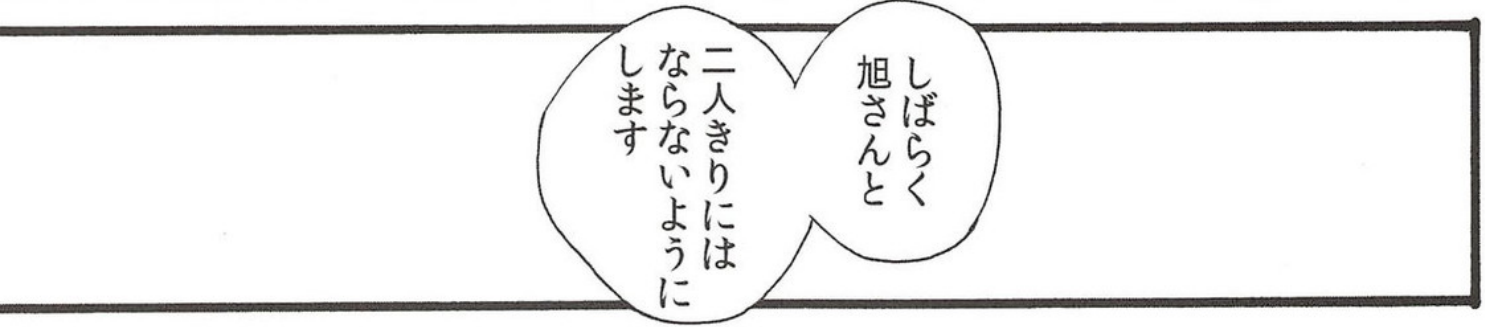 しばらく
旭さんと
二人きりには
ならないように
します